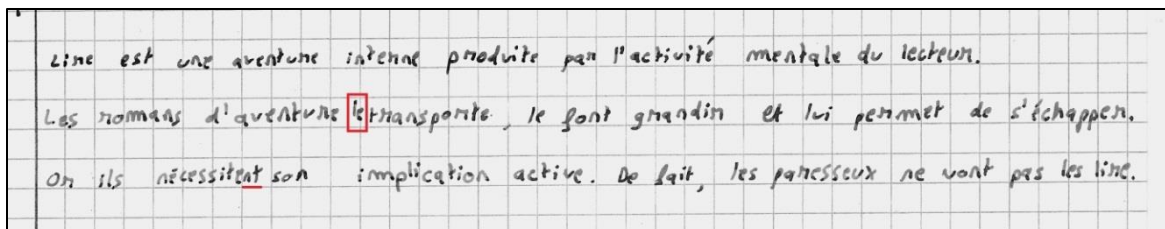 Lire est une aventure interne produite par l'activité mentale du lecteur.
Les romans d'aventure le transporte, le font grandir et lui permet de s'échapper.
Or ils nécessitent son implication active. De fait, les paresseux ne vont pas les lire.